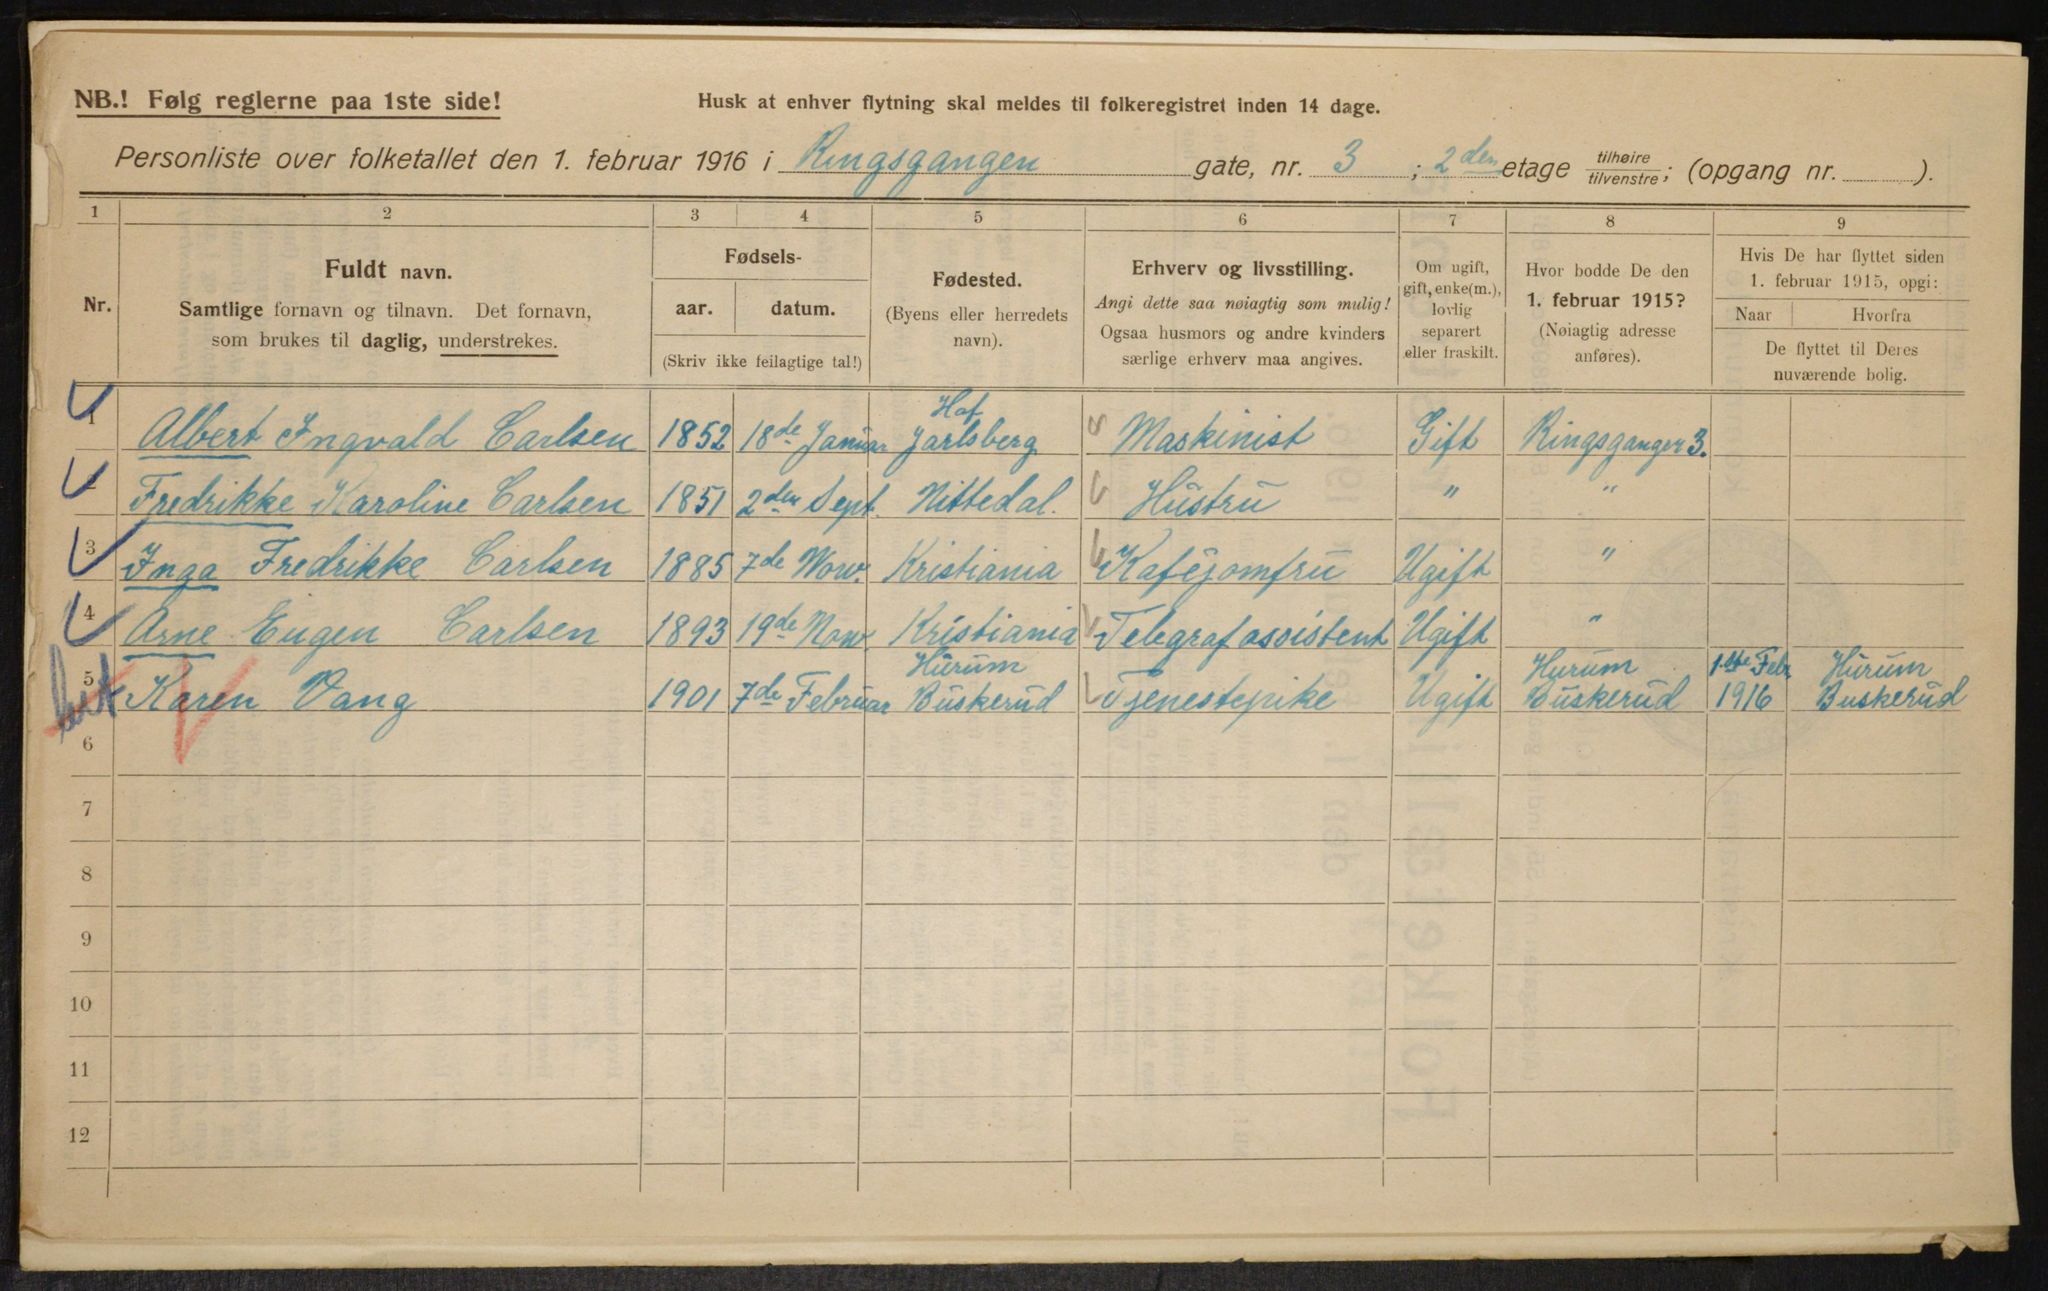 NB.! Følg reglerne paa 1ste side!
Husk at enhver flytning skal meldes til folkeregistret inden 14 dage.
Personliste over folketallet den 1. februar 1916 i Ringsgangen gate, nr. 3 ; 2den etage tilhøire/tilvenstre; (opgang nr. ).
1 2 3 4 5 6 7 8 9
Nr.
Fuldt navn.
Samtlige fornavn og tilnavn. Det fornavn,
som brukes til daglig, understrekes.
Fødsels-
aar. datum.
(Skriv ikke feilagtige tal!)
Fødested.
(Byens eller herredets
navn).
Erhverv og livsstilling.
Angi dette saa nøiagtig som mulig!
Ogsaa husmors og andre kvinders
særlige erhverv maa angives.
Om ugift,
gift, enke(m.),
lovlig
separert
eller fraskilt.
Hvor bodde De den
1. februar 1915?
(Nøiagtig adresse
anføres).
Hvis De har flyttet siden
1. februar 1915, opgi:
Naar Hvorfra
De flyttet til Deres
nuværende bolig.
1 Albert Ingvald Carlsen 1852 18de Januar Hof Jarlsberg Maskinist Gift Ringsgangen 3.
2 Fredrikke Karoline Carlsen 1851 2den Sept. Nittedal. Hustru " "
3 Inga Fredrikke Carlsen 1885 7de Nov. Kristiania Kaféjomfru Ugift "
4 Arne Eugen Carlsen 1893 19de Nov. Kristiania Telegrafassistent Ugift "
5 Karen Vang 1901 7de Februar Hurum Buskerud Tjenestepike Ugift Hurum Buskerud 1ste Febr. 1916 Hurum Buskerud
6
7
8
9
10
11
12